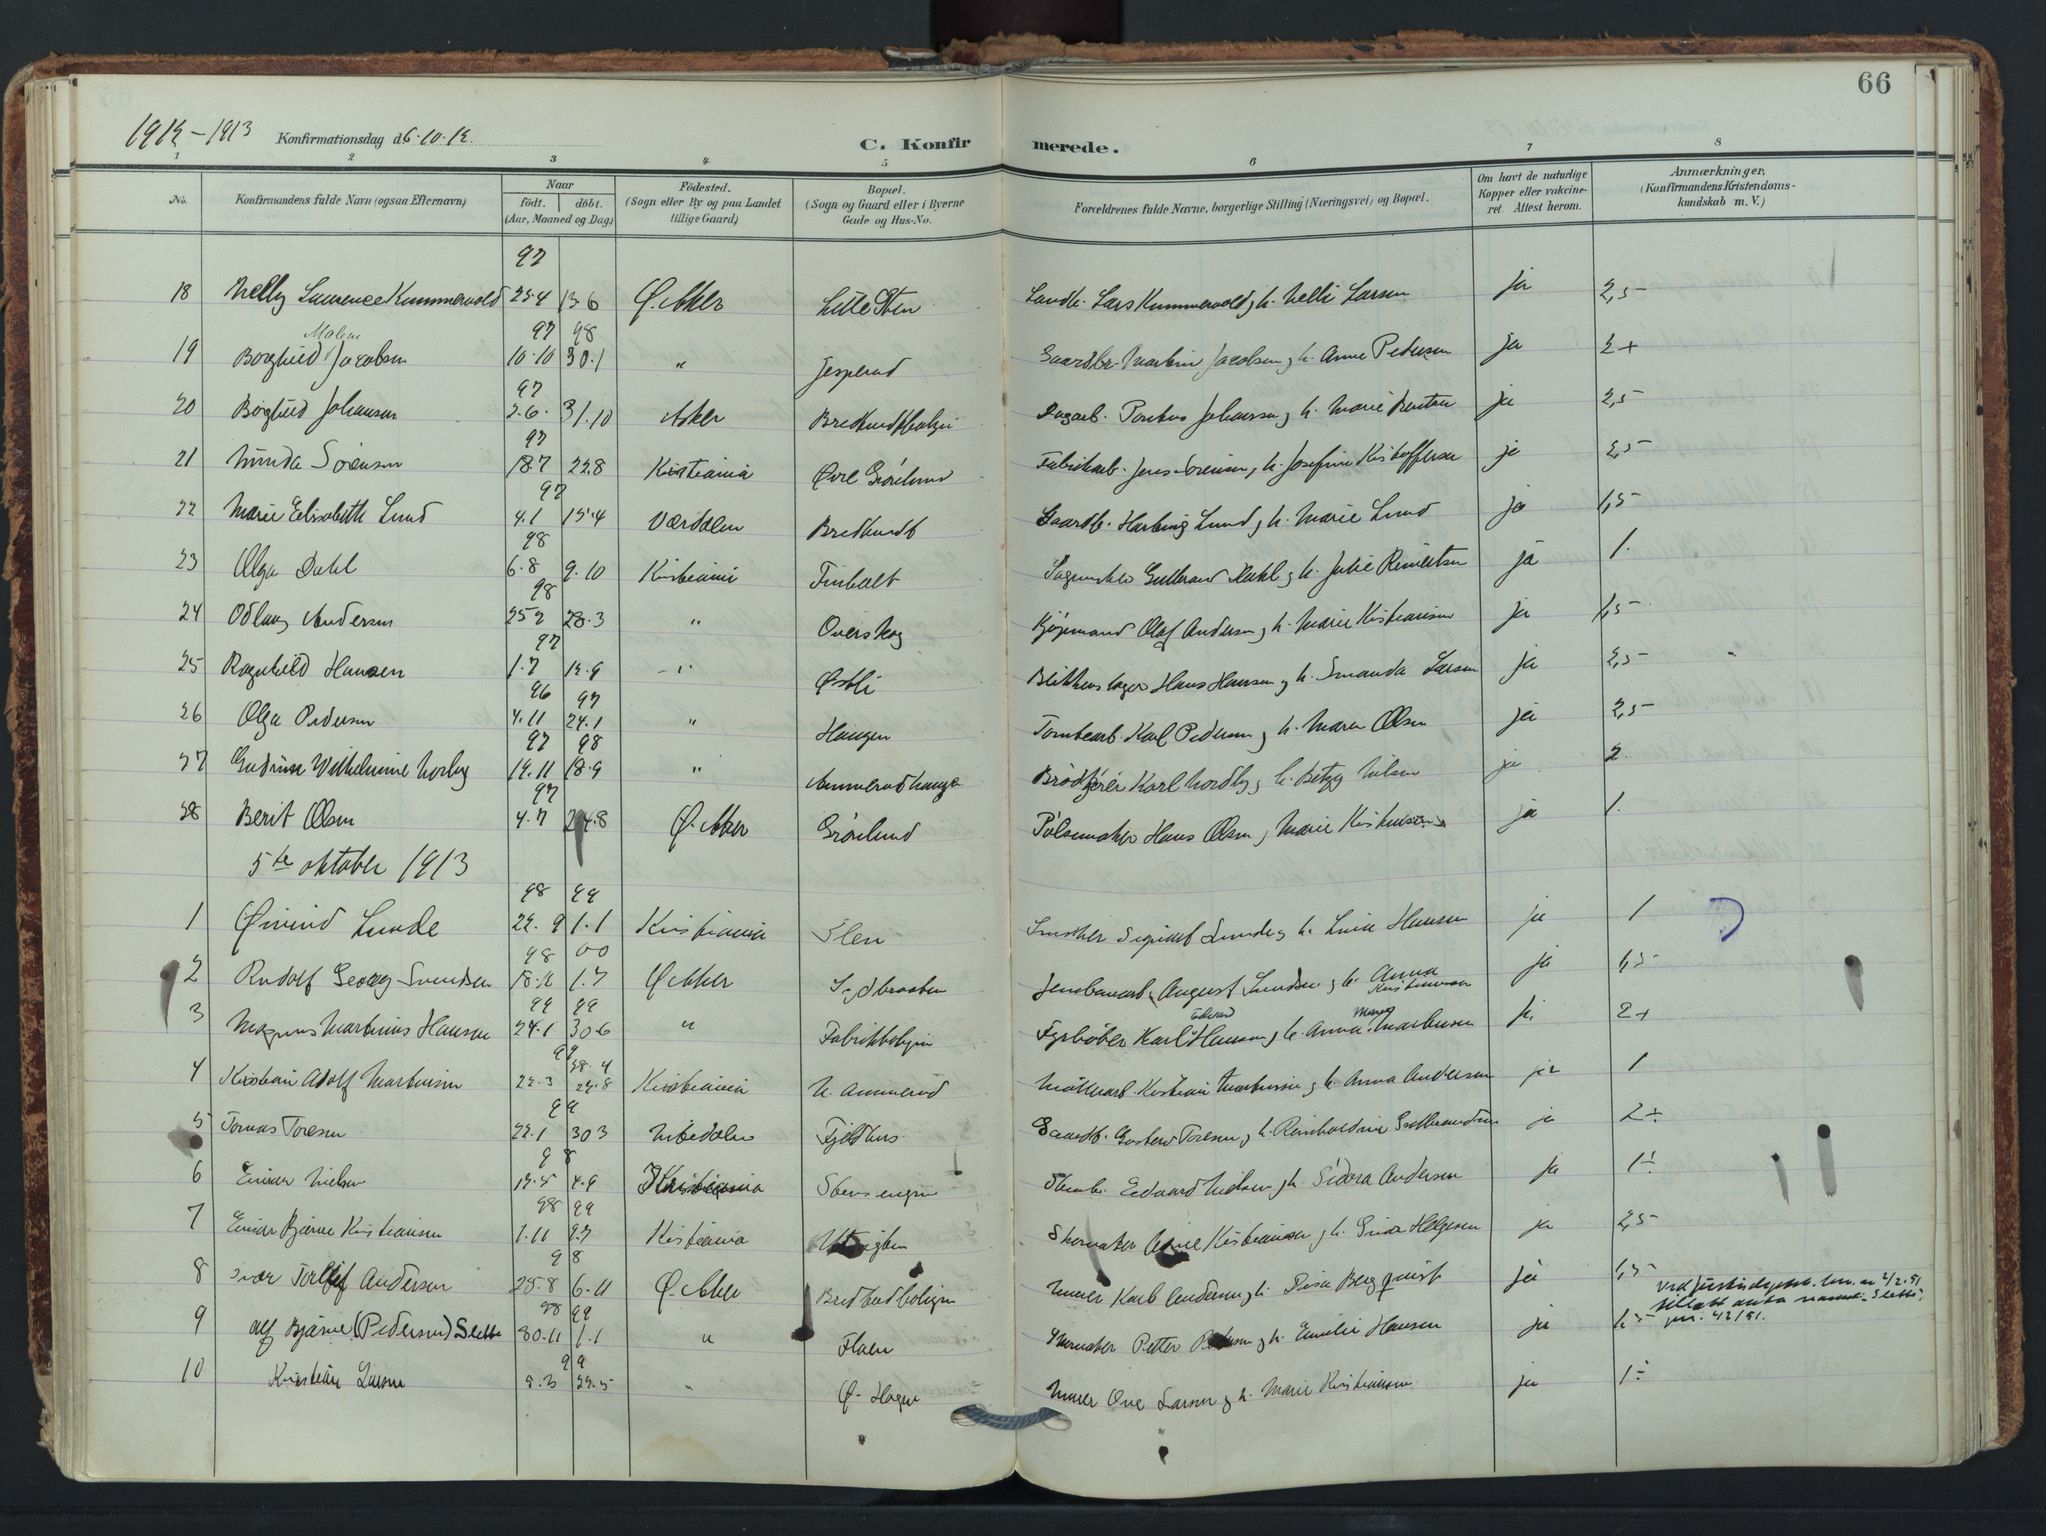 66
1912-1913 Konfirmationsdag d. 6.10.12. C. Konfirmerede.
1 2 3 4 5 6 7 8
No. Konfirmandens fulde Navn (ogsaa Efternavn) Naar födt. döbt. (Aar, Maaned og Dag) Födested. (Sogn eller By og paa Landet tillige Gaard) Bopæl. (Sogn og Gaard eller i Byerne Gade og Hus-No. Forældrenes fulde Navne, borgerlige Stilling (Næringsvei) og Bopæl. Om havt de naturlige Kopper eller vakcineret. Attest herom. Anmærkninger. (Konfirmandens Kristendomskundskab m. V.)
97
18 Nelly Laurence Kummervold 25.4 13.6 Ø. Aker Lille Sten Landh. Lars Kummervold, h. Nelli Larsen ja 2,5
Malene 97 98
19 Borghild Jacobsen 10.10 30.1 " Jesperud Gaardbr. Martin Jacobsen, h. Anne Pedersen ja 2+
97
20 Borghild Johansen 2.6. 31.10 Asker Dagarb. Pontus Johansen, h. Marie ja 2,5
97
21 Sörensen 18.7 22.8 Kristiania Øvre Grorud Fabrikarb. Jens Sörensen, h. Josefine Kristoffersen ja 2,5
97
22 Marie Elisabeth Lund 4.1 15.4 Værdalen Bredtvedt Gaardb. Lund, h. Marie Lund ja 1,5
98
23 Olga Dahl 6.8 9.10 Kristiania Gulbrand Dahl, h. Julie ja 1.
98
24 Odlaug Andersen 25.2 28.3 " Kjøpmand Olaf Andersen, h. Marie Kristiansen ja 1,5
97
25 Ragnhild Hansen 1.7 12.9 " Østli Blikkenslager Hans Hansen, h. Larsen ja 2,5
96 97
26 Olga Pedersen 4.11 24.1 " Haugen Tomtearb. Karl Pedersen, h. Maren Olsen ja 2,5
97 98
27 Gudrun Wilhelmine Norby 14.11 18.9 " Ammerudhaugen Brödkjörer Karl Nordby, h. Betzy Nilsen ja 2.
97
28 Berit Olsen 4.7 24.8 Ø. Aker Grorud Pölsemaker Hans Olsen, Marie ja 1.
5te oktober 1913
98 99
1 Øivind Lunde 22.9 1.1 Kristiania Flen Snekker Lunde, h. Hansen ja 1
98 00
2 Rudolf Georg Svendsen 18.12 1.7 Ø Aker Sydbraaten Jernbanearb. August Svendsen, h. Anna Kristiansen ja 1,5
99 99
3 Magnus Martinius Hansen 24.1 30.6 " Fabrikboligen Fyrbøter Karl Edvard Hansen, h. Anna Marie Martinsen ja 2+
99 28.4
4 Kristian Adolf Martinsen 22.3 24.8 Kristiania N. Ammerud Kristian Martinsen, h. Anna Andersen ja 1
99
5 Tomas Toresen 22.1 30.3 Fjeldhus Gaardb. Gustav Toresen, h. Reinholdine Gulbrandsen ja 2÷
98
6 Einar Nielsen 12.5 4.9 Kristiania Stensengen Edvard Nielsen, h. Sidora Andersen ja 1÷
98 99
7 Einar Bjarne Kristiansen 1.11 9.7 Kristiania Skomaker Arne Kristiansen, h. Helgesen ja 2,5
98
8 Ivar Torleif Andersen 25.8 6.11 Ø. Aker Bredtvedtboligen Murer Karl Andersen, h. Bergquist ja 1,5
98 99
9 Alf Bjarne (Pedersen) Slette 30.11 1.1 " Flaen Skomaker Petter Pedersen, h. Emilie Hansen ja 1,5 Ved 2/2.51 tillatt anta navnet Slette, jnr. 42/51.
99
10 Kristian Larsen 5.3 22.5 " Ø. Hagen Murer Ove Larsen, h. Marie Kristiansen ja 1÷